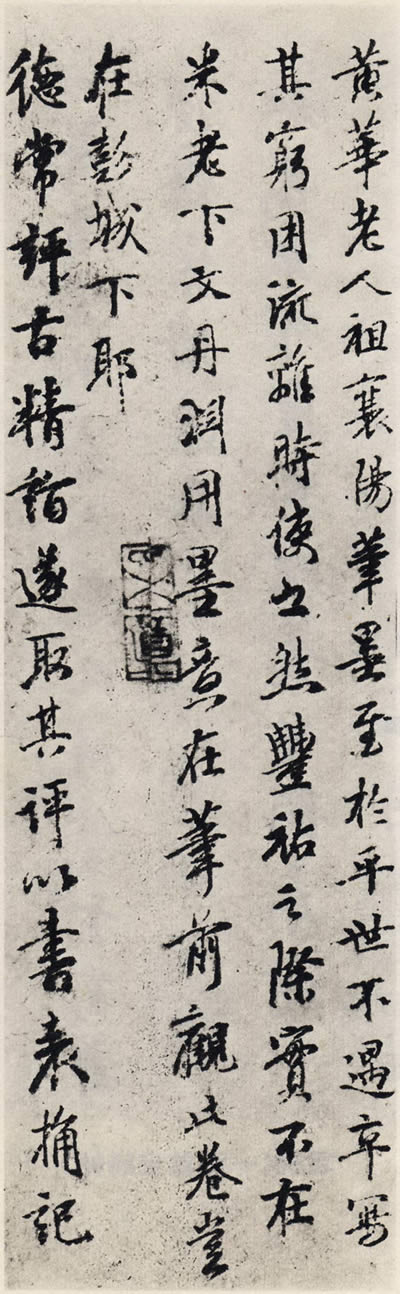 黄華老人祖襄陽筆墨至於平世不遇卒寫
其窮困流離時使之然豐祐之際實不在
米老下文丹淵用墨意在筆前觀此卷豈
在彭城下耶
德常評古精詣遂取其評以書袁桷記